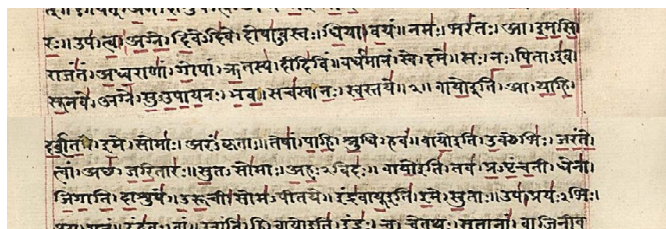 रः॥ उप॑ । त्वा॒ । अ॒ग्ने॒ । दि॒वेऽदि॑वे । दोषा॑ऽवस्तः । धि॒या । व॒यं॥ नमः॑ । भरं॑तः । आ । इ॒म॒सि॒
राजं॑तं । अ॒ध्व॒राणां॑ । गो॒पां । ऋ॒तस्य॑ । दीदि॑विं॥ वर्ध॑मानं । स्वे । दमे॑॥ सः । नः॒ । पि॒ताऽइ॑व
सू॒नवे॑ । अग्ने॑ । सु॒ऽउ॒पा॒य॒नः । भ॒व॒॥ सच॑स्व । नः॒ । स्व॒स्तये॑॥ २॥ वायो॒ इति॑ । आ । या॒हि॒
द॒र्श॒त॒ । इ॒मे । सोमाः॑ । अरं॑ऽकृताः॥ तेषां॑ । पा॒हि॒ । श्रु॒धि । हवं॑॥ वायो॒ इति॑ । उ॒क्थेभिः॑ । ज॒रं॒ते॒
त्वां । अच्छ॑ । ज॒रि॒तारः॑॥ सु॒तऽसो॑माः । अ॒हः॒ऽविदः॑॥ वायो॒ इति॑ । तव॑ । प्र॒ऽपृं॒च॒ती । धेना॑
जि॒गा॒ति॒ । दा॒शुषे॑॥ उ॒रू॒ची । सोम॑ऽपीतये॥ इंद्र॑वायू॒ इति॑ । इ॒मे । सु॒ताः॥ उप॑ । प्रयः॑ऽभिः ।